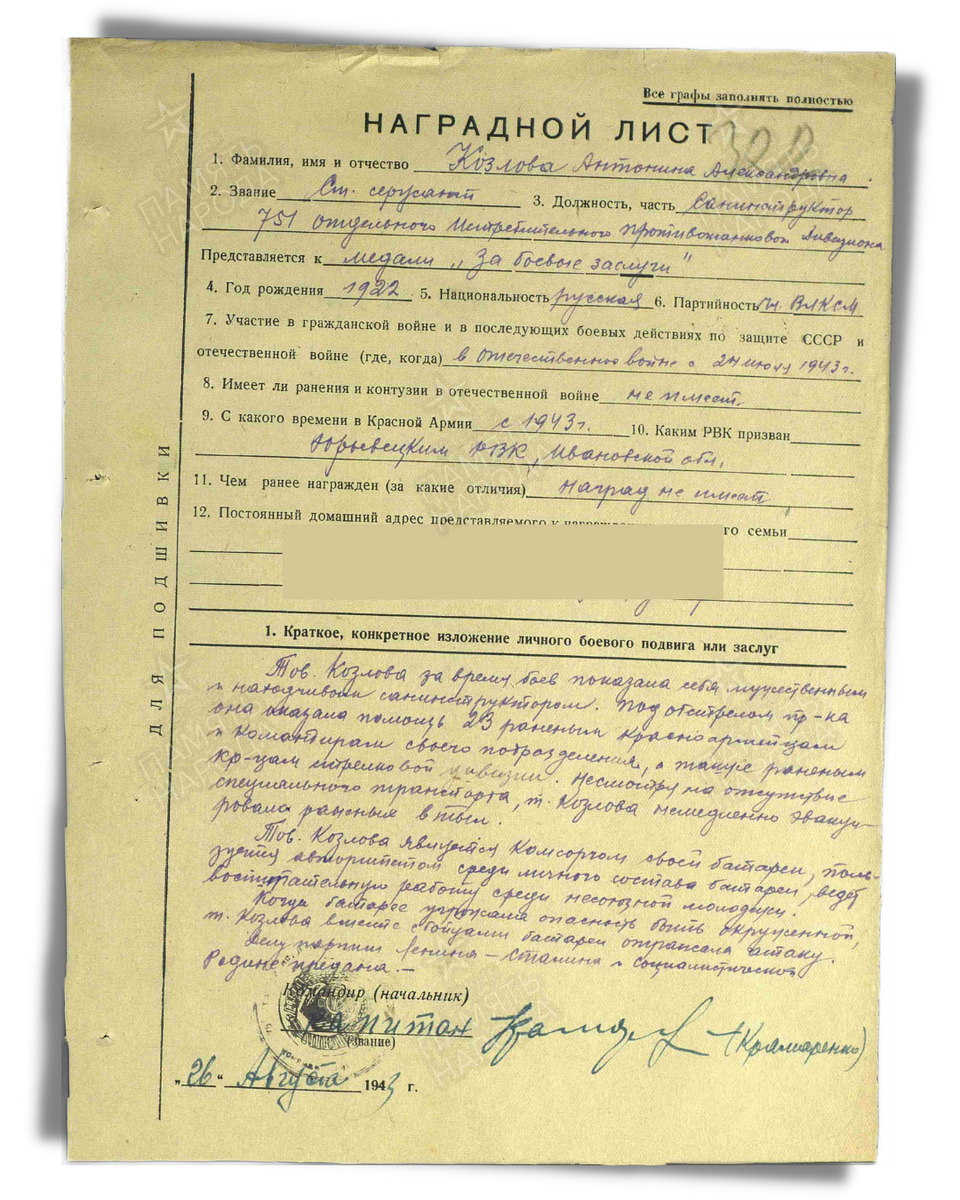 Все графы заполнять полностью
НАГРАДНОЙ ЛИСТ
1. Фамилия, имя и отчество Козлова Антонина Александровна
2. Звание Ст. сержант 3. Должность, часть Санинструктор
751 отдельного Истребительного противотанковой дивизиона
Представляется к медали „За боевые заслуги"
4. Год рождения 1922 5. Национальность русская 6. Партийность чл. ВЛКСМ
7. Участие в гражданской войне и в последующих боевых действиях по защите СССР и
отечественной войне (где, когда) в отечественной войне с 24 июля 1943 г.
8. Имеет ли ранения и контузии в отечественной войне не имеет.
9. С какого времени в Красной Армии с 1943 г. 10. Каким РВК призван
Юрьевецким РВК, Ивановской обл.
11. Чем ранее награжден (за какие отличия) наград не имеет
12. Постоянный домашний адрес представляемого к семьи
ДЛЯ ПОДШИВКИ
1. Краткое, конкретное изложение личного боевого подвига или заслуг
Тов. Козлова за время боев показала себя мужественным
и находчивым санинструктором. Под обстрелом пр-ка
она оказала помощь 23 раненым красноармейцам
и командирам своего подразделения, а также раненым
кр-цам стрелковой дивизии. Несмотря на отсутствие
специального транспорта, т. Козлова немедленно эвакуи-
ровала раненых в тыл.
Тов. Козлова является комсоргом своей батареи, поль-
зуется авторитетом среди личного состава батареи, ведет
воспитательную работу среди несоюзной молодежи.
Когда батарее угрожала опасность быть окруженной,
т. Козлова вместе с бойцами батареи отражала атаку.
Делу партии Ленина – Сталина и социалистической
Родине предана. –
Командир (начальник)
капитан (Крамаренко)
(звание)
„26" Августа 1943 г.
ПАМЯТЬ НАРОДА